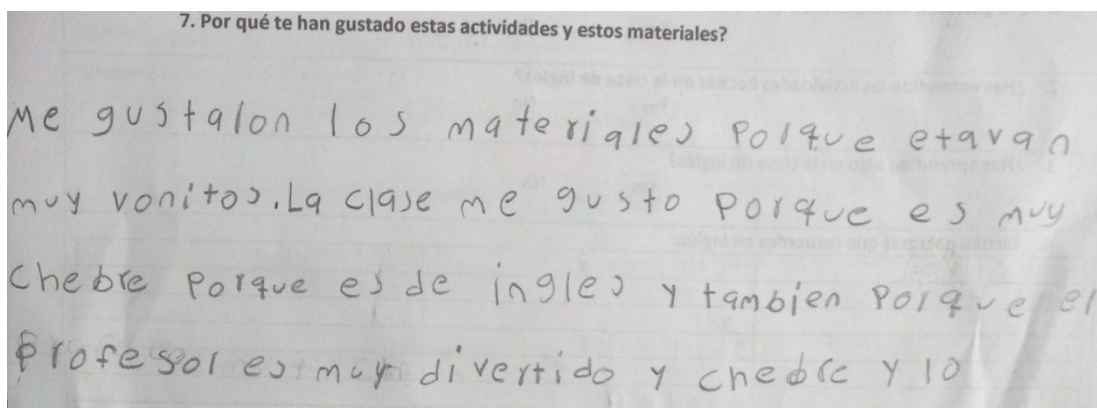 7. Por qué te han gustado estas actividades y estos materiales?
Me gustalon los materiales Porque etavan
muy vonitos. La clase me gusto Porque es muy
chebre Porque es de ingles y tambien Porque el
Profesol es muy divertido y chebre y lo